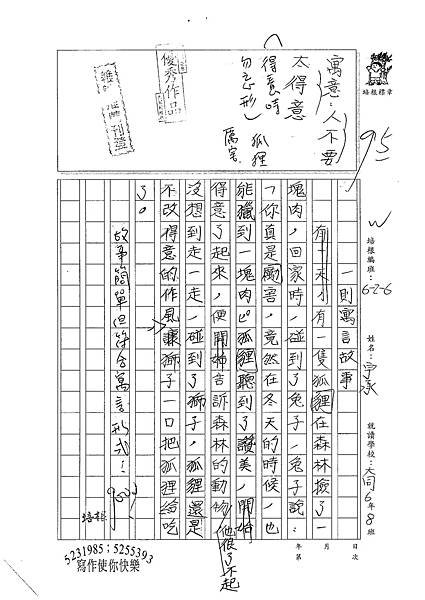 培根標章
95
寓意：人不要
太得意
（得意時
勿忘形）
狐狸
厲害
俊秀作品
刊登
W
培根編班：6-2-6
姓名：宇承
就讀學校：大同6年8班
一則寓言故事
有一天，有一隻狐狸在森林撿了一
塊肉，回家時，碰到了兔子，兔子說：
「你真是厲害，竟然在冬天的時候，也
能獵到一塊肉。」狐狸聽到了讚美，開始
得意了起來，便開始告訴森林的動物他很了不起
沒想到走一走，碰到了獅子，狐狸還是
不改得意的作風，讓獅子一口把狐狸給吃
了。
故事簡單但符合寓言形式！
年 月 日
第 次
培根
5231985；5255393
寫作使你快樂